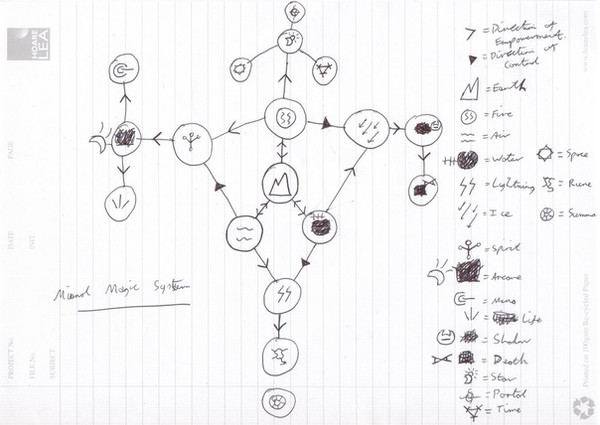 HOARE
LEA
PAGE
DATE
INIT.
PROJECT No.
FILE No.
SUBJECT
= Direction of
Empowerment.
= Direction of
Control
= Earth
= Fire
= Air
= Water
= Lightning
= Ice
= Space
= Rune
= Summon
= Spirit
= Arcane
= Life
= Death
= Star
= Portal
= Time
Magic System
Printed on 100gsm Recycled Paper